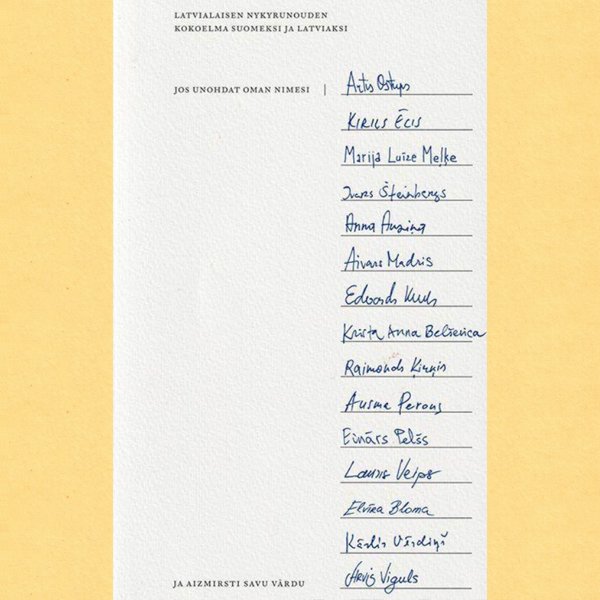 LATVIALAISEN NYKYRUNOUDEN
KOKOELMA SUOMEKSI JA LATVIAKSI
JOS UNOHDAT OMAN NIMESI |
Artis Ostups
KIRILS ĒCIS
Marija Luīze Meļķe
Ivars Šteinbergs
Anna Auziņa
Aivars Madris
Edvards Kuks
Krista Anna Belševica
Raimonds Ķirķis
Ausma Perons
Einārs Pelšs
Lauris Veips
Elvīra Bloma
Kārlis Vērdiņš
Arvis Viguls
JA AIZMIRSTI SAVU VĀRDU